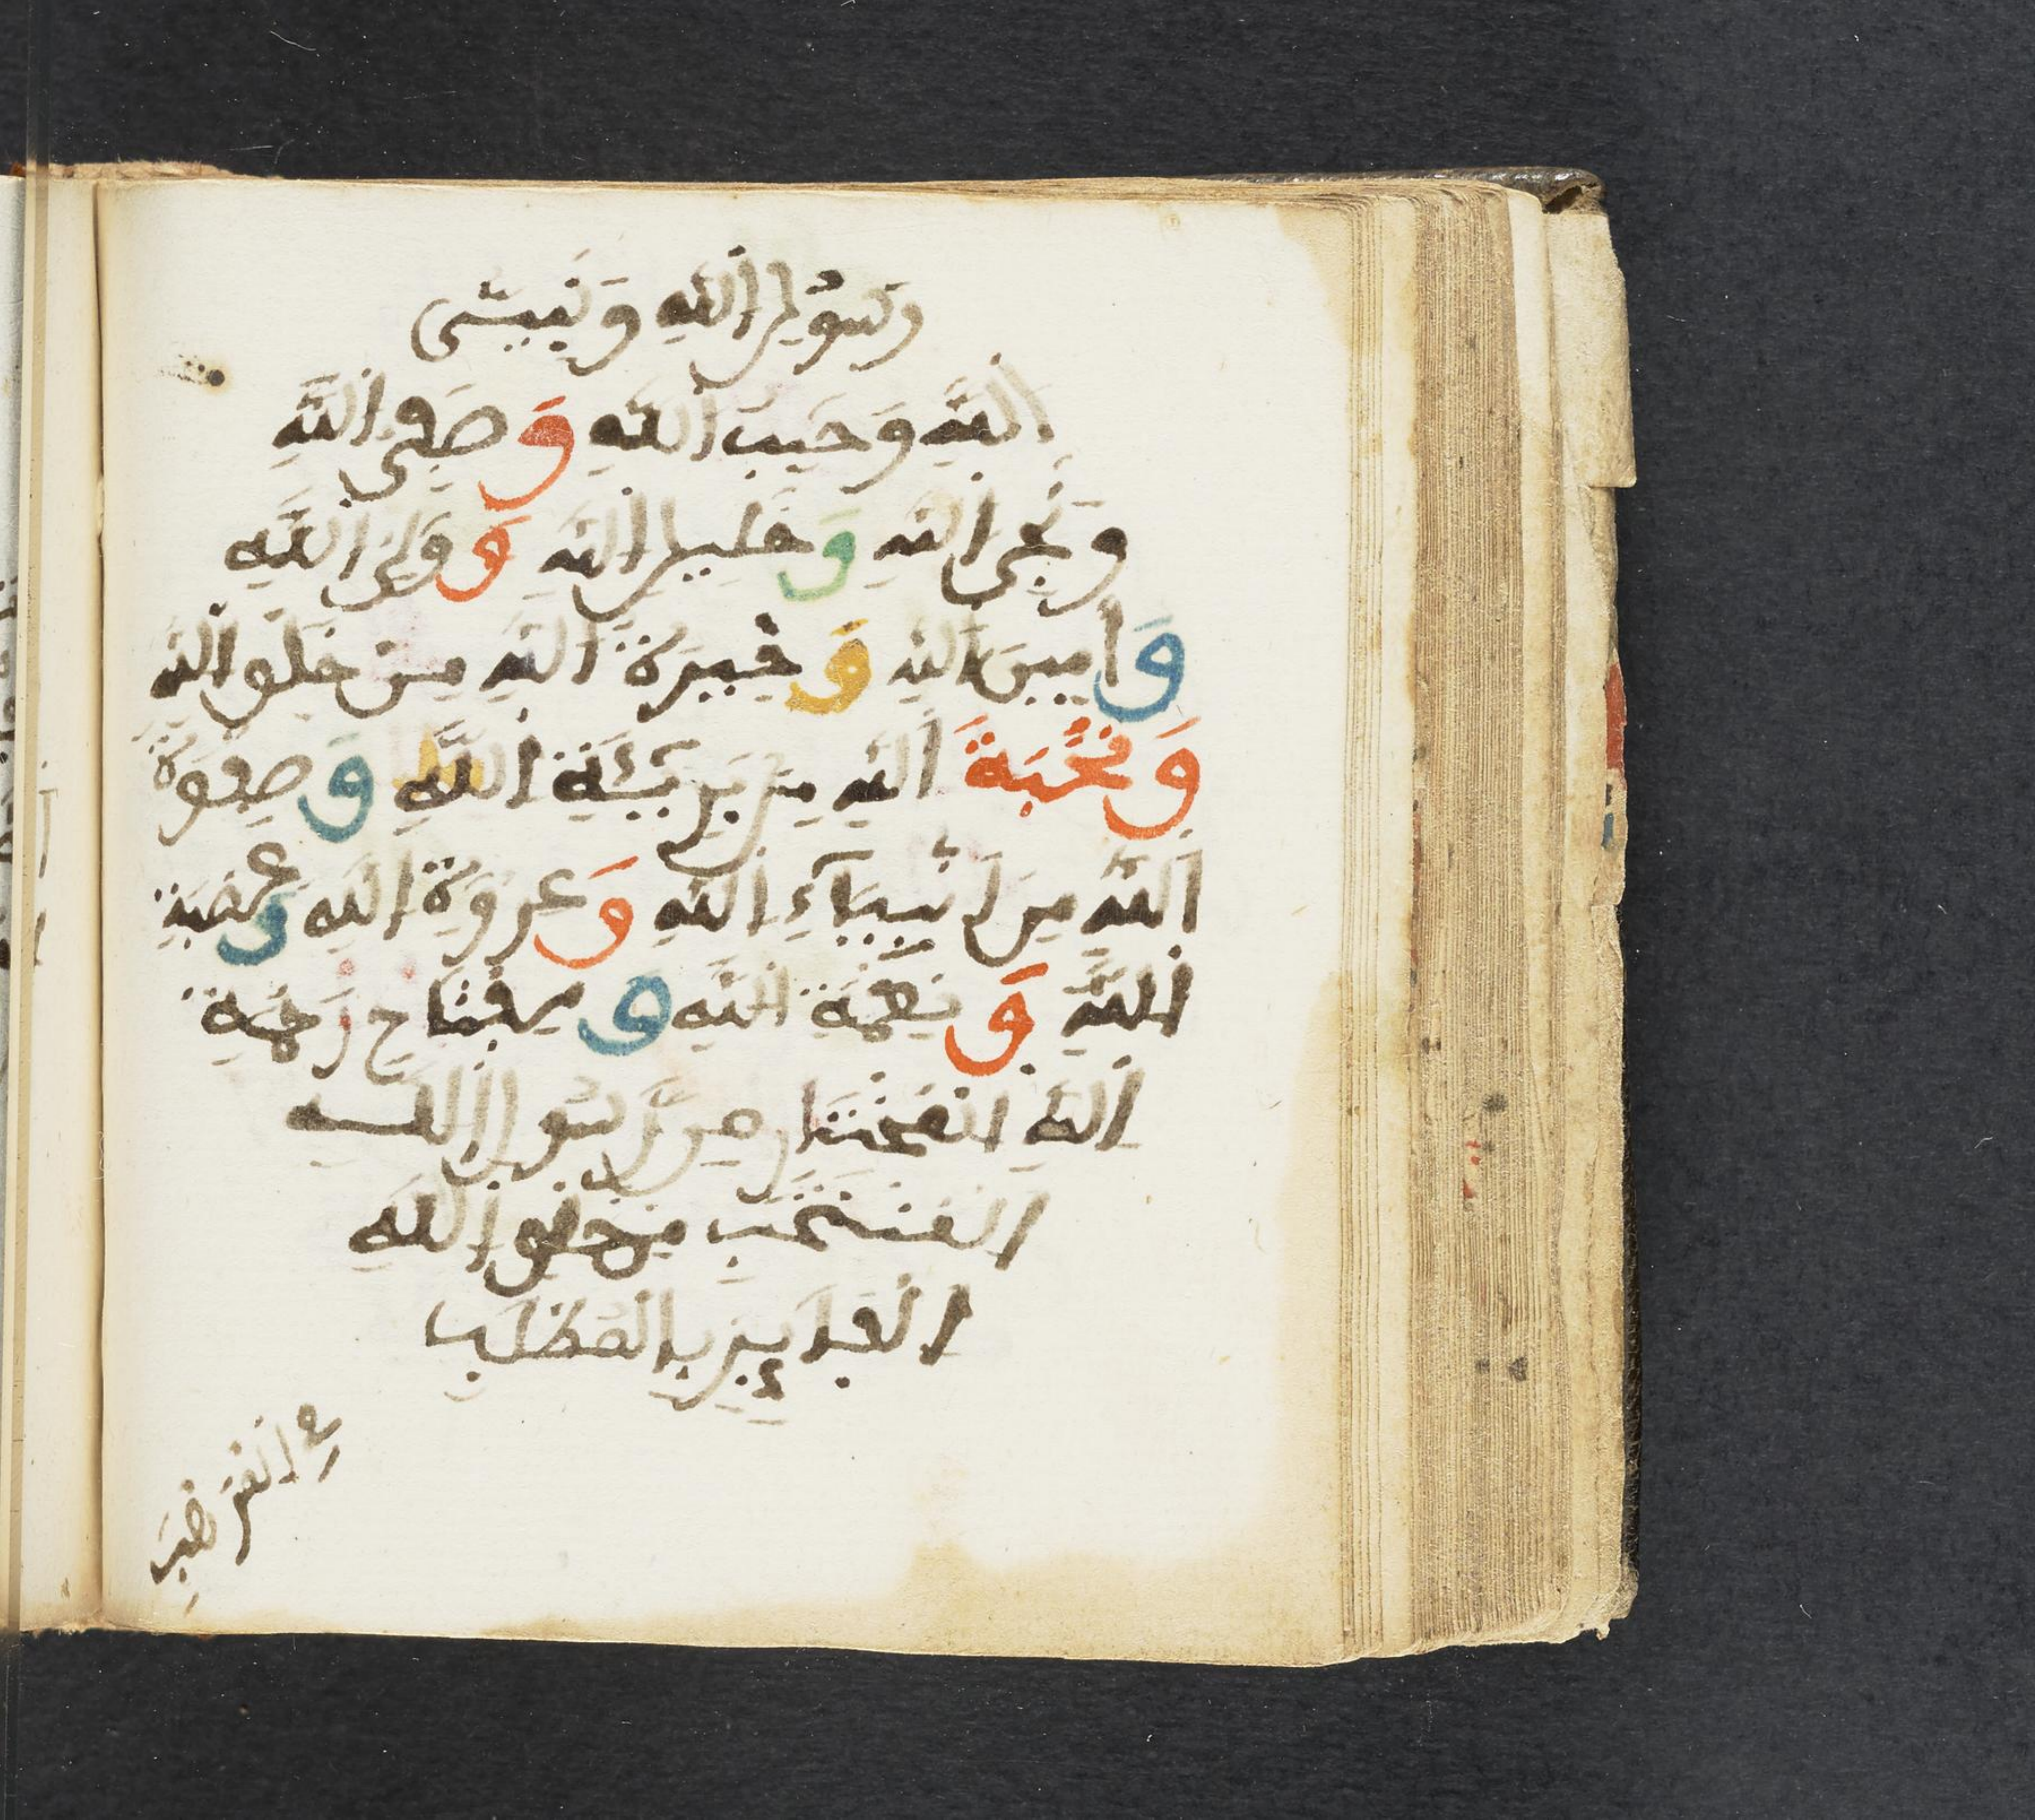 رسول الله ونبيئ
الله وحبيب الله وصفي الله
ونجي الله وخليل الله وولي الله
وامين الله وخيرة الله من خلق الله
ونخبة الله من بريئة الله وصفوة
الله من انبياء الله وعروة الله وعصمة
الله ونعمة الله ومفتاح رحمة
الله المختار من رسول الله
المنتخب من خلق الله
الفايز بالمطلب
في المرغب